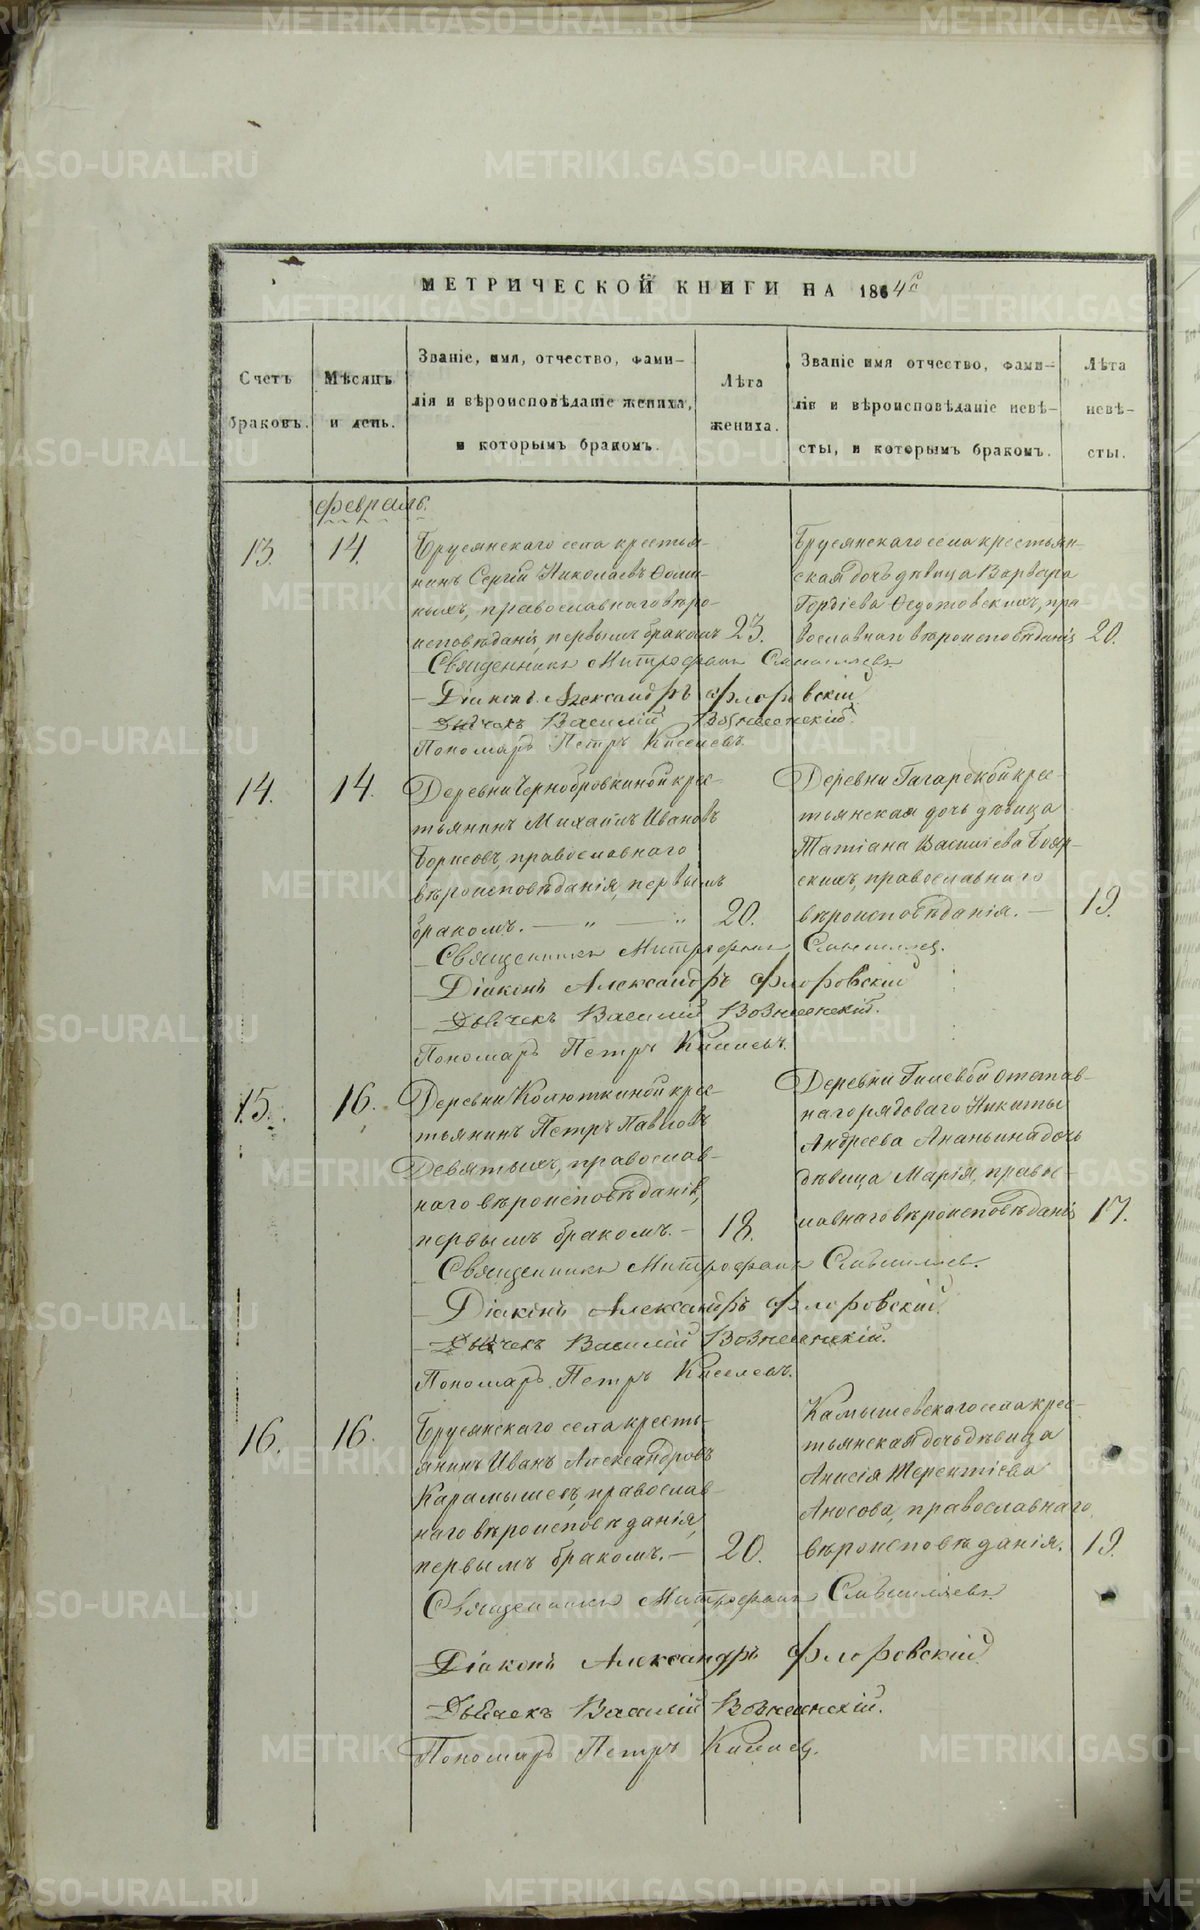 МЕТРИЧЕСКОЙ КНИГИ НА 1864й
Счетъ браковъ.
Мѣсяцъ и день.
Званіе, имя, отчество, фами-
лія и вѣроисповѣданіе жениха,
и которымъ бракомъ.
Лѣта
жениха.
Званіе имя отчество, фами-
лія и вѣроисповѣданіе невѣ-
сты, и которымъ бракомъ.
Лѣта
невѣ-
сты.
Февраль.
13.
14.
Брусянскаго села крестья-
нинъ Сергій Николаевъ Ѳоми-
ныхъ, православнаго вѣро-
исповѣданія, первымъ бракомъ
23.
Брусянскаго села крестьян-
ская дочь дѣвица Варвара
Гордіева Ѳедотовскихъ, пра-
вославнаго вѣроисповѣданія
20.
Священникъ Митрофанъ
Діаконъ Александръ Флоровскій
Дьячекъ Василій Вознесенскій.
Пономарь Петръ Киселевъ.
14.
14.
Деревни Чернобровкиной крес-
тьянинъ Михаилъ Ивановъ
Борисовъ, православнаго
вѣроисповѣданія, первымъ
бракомъ. — „ — „
20.
Деревни Гагарской крес-
тьянская дочь дѣвица
Татіана Василіева Бояр-
скихъ, православнаго
вѣроисповѣданія. —
19.
Священникъ Митрофанъ
Діаконъ Александръ Флоровскій
Дьячекъ Василій Вознесенскій.
Пономарь Петръ Киселевъ.
15.
16.
Деревни Колюткиной крес-
тьянинъ Петръ Павловъ
Девятыхъ, православ-
наго вѣроисповѣданія,
первымъ бракомъ. —
18.
Деревни Гилевой отстав-
наго рядоваго Никиты
Андреева Ананьина дочь
дѣвица Марія, правос-
лавнаго вѣроисповѣданія
17.
Священникъ Митрофанъ
Діаконъ Александръ Флоровскій.
Дьячекъ Василій Вознесенскій.
Пономарь Петръ Киселевъ.
16.
16.
Брусянскаго села кресть-
янинъ Иванъ Александровъ
Карамышевъ, православ-
наго вѣроисповѣданія,
первымъ бракомъ. —
20.
Камышевскаго села крес-
тьянская дочь дѣвица
Анисія Терентіева
Аносова, православнаго
вѣроисповѣданія.
19.
Священникъ Митрофанъ
Діаконъ Александръ Флоровскій
Дьячекъ Василій Вознесенскій.
Пономарь Петръ Киселевъ.
METRIKI.GASO-URAL.RU